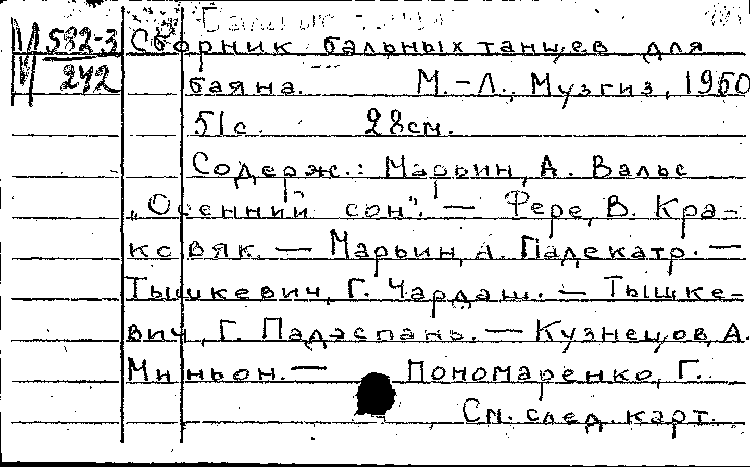 М 582-3
242
Сборник бальных танцев для
баяна. М.-Л., Музгиз, 1950
51с. 28см.
Содерж.: Марьин, А. Вальс
„Осенний сон". — Фере, В. Кра-
ковяк. — Марьин, А. Падекатр. —
Тышкевич, Г. Чардаш. — Тышке-
вич, Г. Падэспань. — Кузнецов, А.
Миньон. — Пономаренко, Г.
См. след. карт.